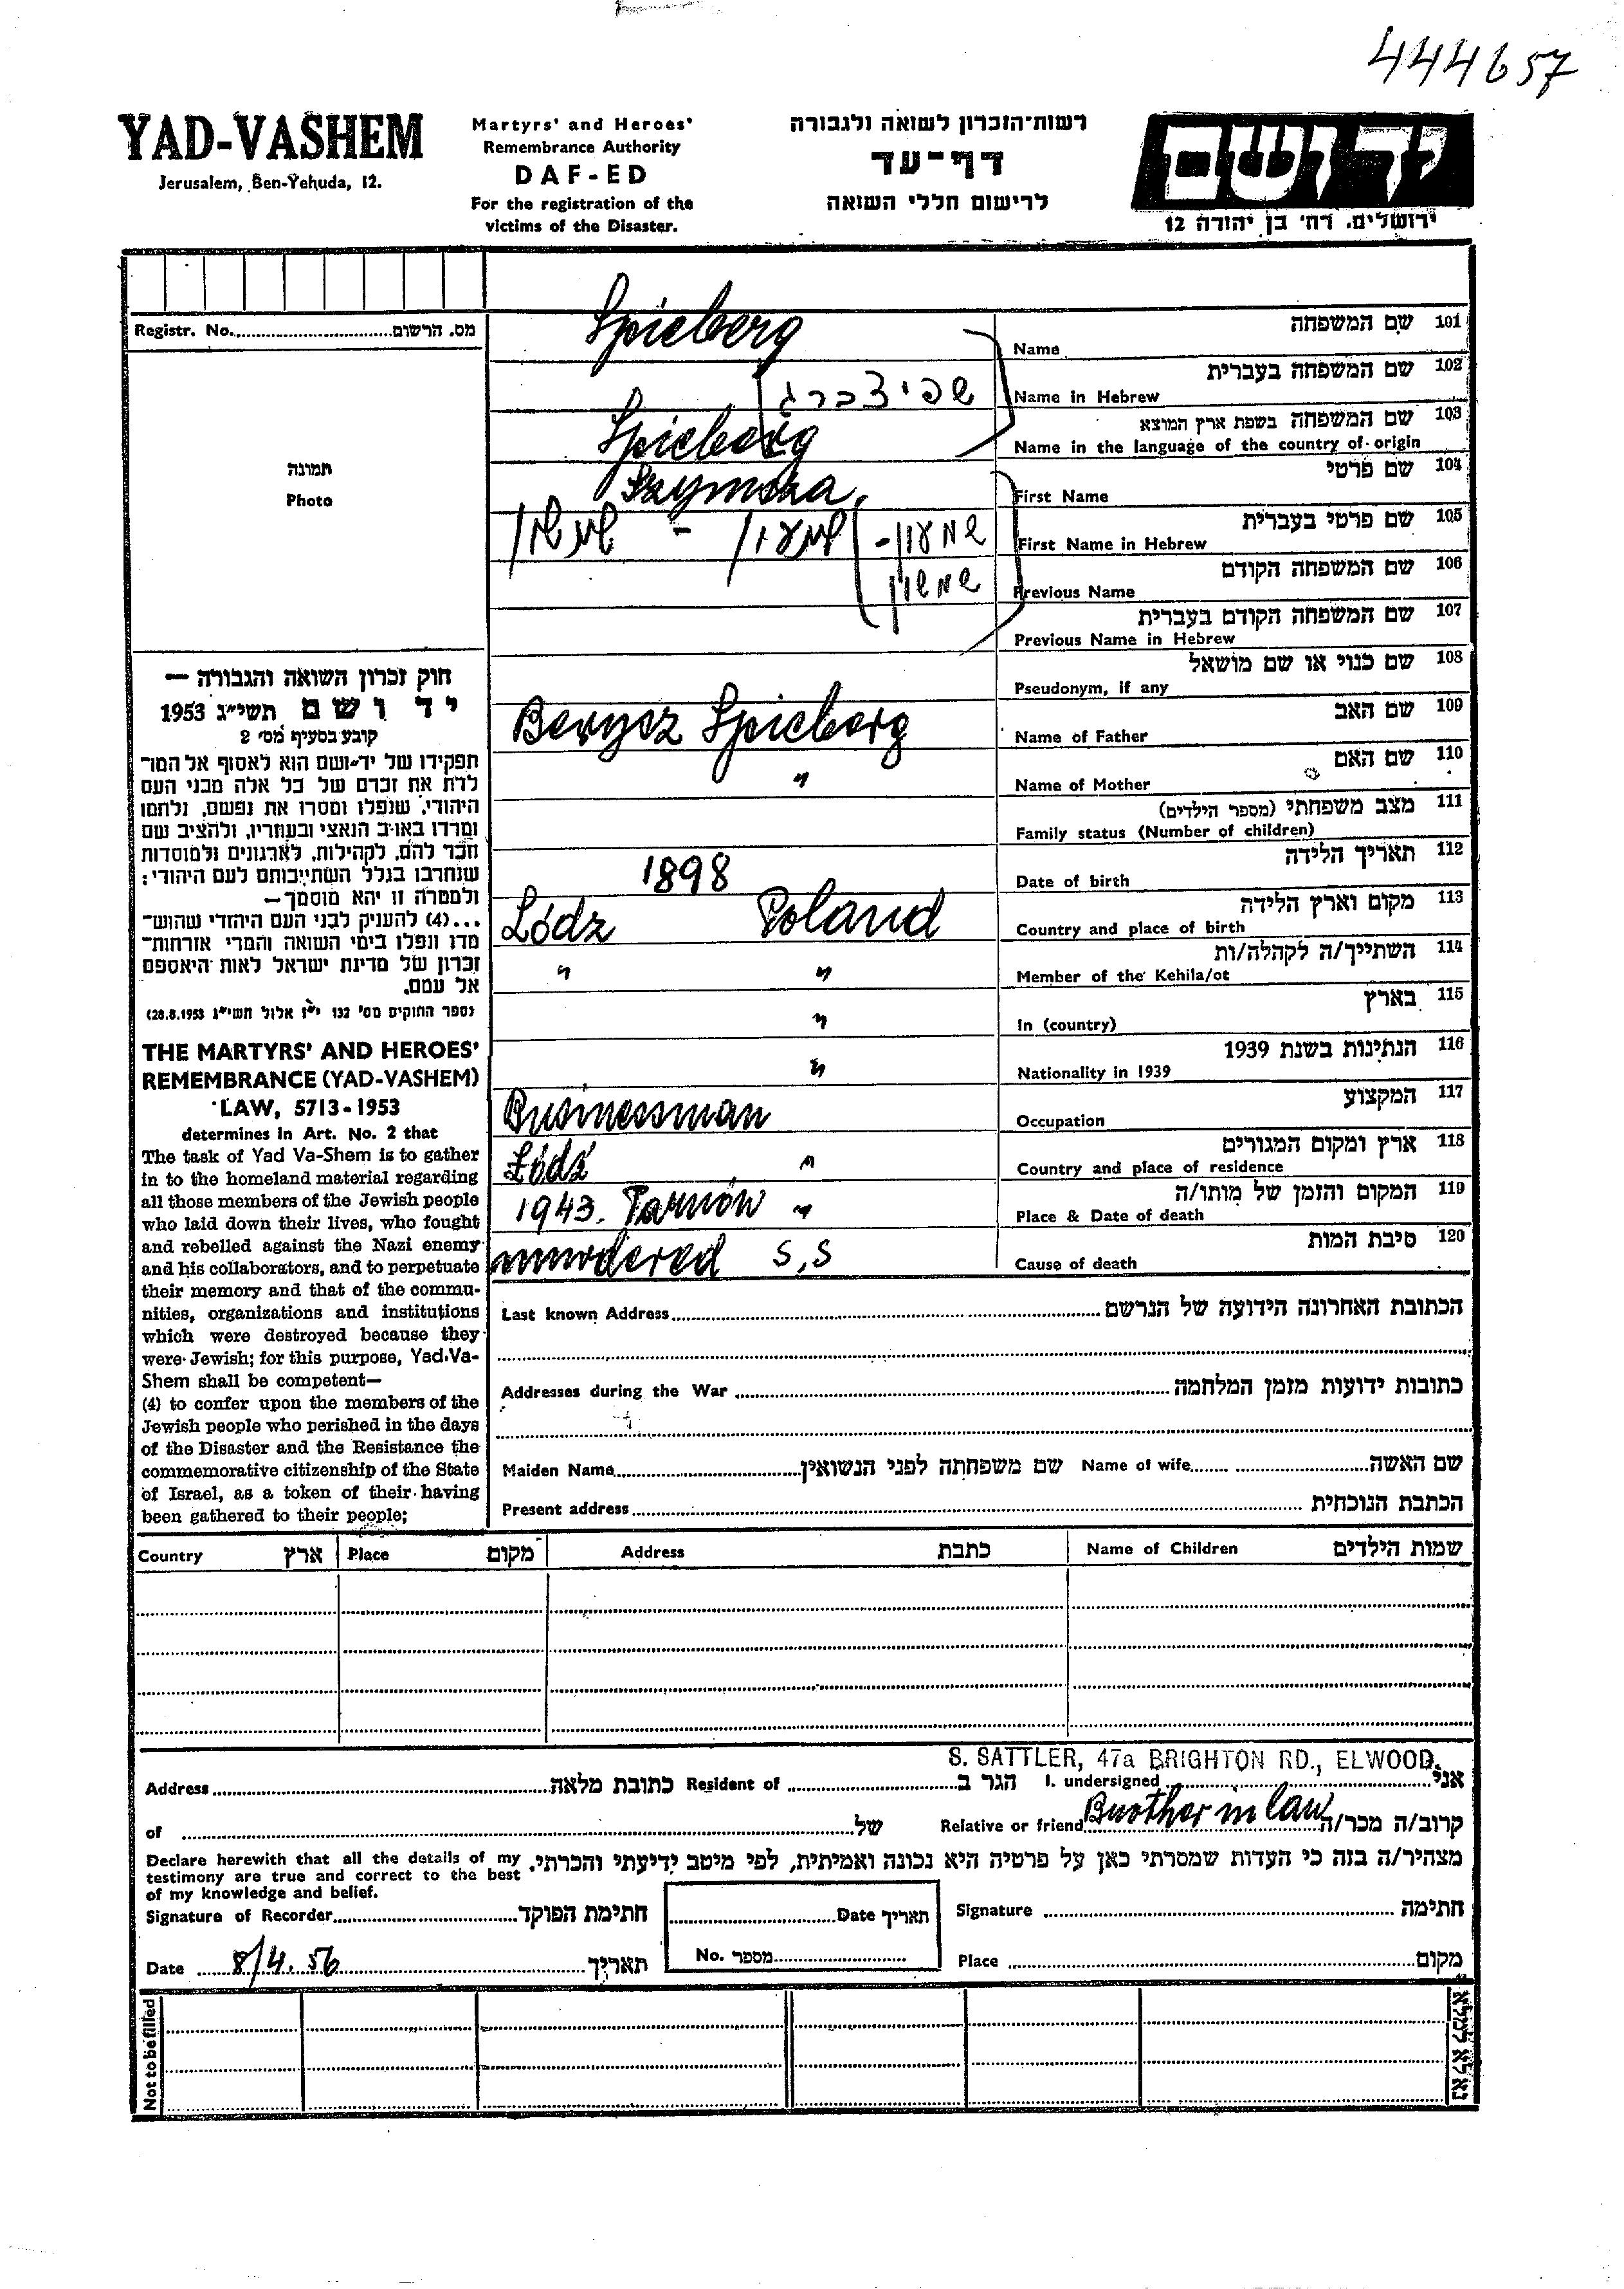 444657
YAD-VASHEM
Jerusalem, Ben-Yehuda, 12.
Martyrs' and Heroes'
Remembrance Authority
DAF-ED
For the registration of the
victims of the Disaster.
רשות-הזכרון לשואה ולגבורה
דף-עד
לרישום חללי השואה
יד ושם
ירושלים, רח' בן יהודה 12
Registr. No. מס. הרשום
תמונה
Photo
Spieberg
שם המשפחה 101
Name
שפיצברג
שם המשפחה בעברית 102
Name in Hebrew
Spieberg
שם המשפחה בשפת ארץ המוצא 103
Name in the language of the country of origin
שם פרטי 104
First Name
שמעון - שמשון
שמעון-
שמשון
שם פרטי בעברית 105
First Name in Hebrew
שם המשפחה הקודם 106
Previous Name
שם המשפחה הקודם בעברית 107
Previous Name in Hebrew
שם כנוי או שם מושאל 108
Pseudonym, if any
Berysz Spieberg
שם האב 109
Name of Father
"
שם האם 110
Name of Mother
מצב משפחתי (מספר הילדים) 111
Family status (Number of children)
1898
תאריך הלידה 112
Date of birth
Lódz Poland
מקום וארץ הלידה 113
Country and place of birth
" "
השתייך/ה לקהלה/ות 114
Member of the Kehila/ot
"
בארץ 115
In (country)
"
הנתינות בשנת 1939 116
Nationality in 1939
Businessman
המקצוע 117
Occupation
Łódź "
ארץ ומקום המגורים 118
Country and place of residence
1943. Tarnów "
המקום והזמן של מותו/ה 119
Place & Date of death
murdered S,S
סיבת המות 120
Cause of death
חוק זכרון השואה והגבורה —
יד ושם תשי"ג 1953
קובע בסעיף מס' 2
תפקידו של יד-ושם הוא לאסוף אל המו־
לדת את זכרם של כל אלה מבני העם
היהודי, שנפלו ומסרו את נפשם, נלחמו
ומרדו באויב הנאצי ובעוזריו, ולהציב שם
וזכר להם, לקהילות, לארגונים ולמוסדות
שנחרבו בגלל השתייכותם לעם היהודי;
ולמטרה זו יהא מוסמך—
...(4) להעניק לבני העם היהודי שהוש־
מדו ונפלו בימי השואה והמרי אזרחות־
זכרון של מדינת ישראל לאות היאספם
אל עמם.
(ספר החוקים מס' 132 י"ז אלול תשי"ג 28.8.1953)
THE MARTYRS' AND HEROES'
REMEMBRANCE (YAD-VASHEM)
LAW, 5713-1953
determines in Art. No. 2 that
The task of Yad Va-Shem is to gather
in to the homeland material regarding
all those members of the Jewish people
who laid down their lives, who fought
and rebelled against the Nazi enemy
and his collaborators, and to perpetuate
their memory and that of the commu-
nities, organizations and institutions
which were destroyed because they
were Jewish; for this purpose, Yad-Va-
Shem shall be competent—
(4) to confer upon the members of the
Jewish people who perished in the days
of the Disaster and the Resistance the
commemorative citizenship of the State
of Israel, as a token of their having
been gathered to their people;
Last known Address הכתובת האחרונה הידועה של הנרשם
Addresses during the War כתובות ידועות מזמן המלחמה
Maiden Name שם משפחתה לפני הנשואין Name of wife שם האשה
Present address הכתבת הנוכחית
Country ארץ Place מקום Address כתבת Name of Children שמות הילדים
S. SATTLER, 47a BRIGHTON RD., ELWOOD.
Address כתובת מלאה Resident of הגר ב I. undersigned אני
of של Relative or friend Brother in law קרוב/ה מכר/ה
Declare herewith that all the details of my
testimony are true and correct to the best
of my knowledge and belief.
מצהיר/ה בזה כי העדות שמסרתי כאן על פרטיה היא נכונה ואמיתית, לפי מיטב ידיעתי והכרתי.
Signature of Recorder חתימת הפוקד Date תאריך Signature חתימה
Date 8/4.56 תאריך No. מספר Place מקום
Not to be filled
נא לא למלא